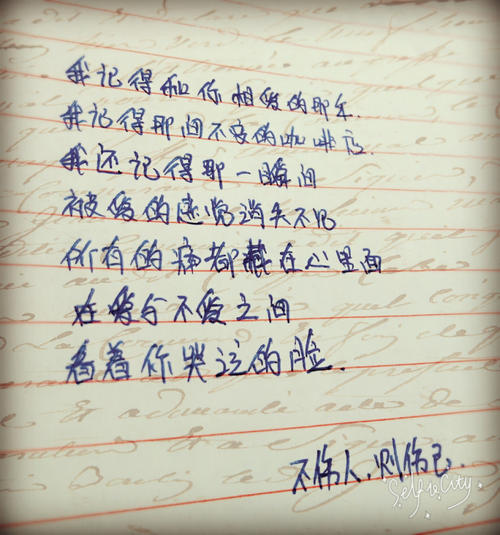 我记得和你相爱的那年.
我记得那间不变的咖啡店.
我还记得那一瞬间
被爱的感觉消失不见
所有的痛都藏在心里面
在爱与不爱之间
看着你哭泣的脸.
不伤人,则伤己.
SelfieCity